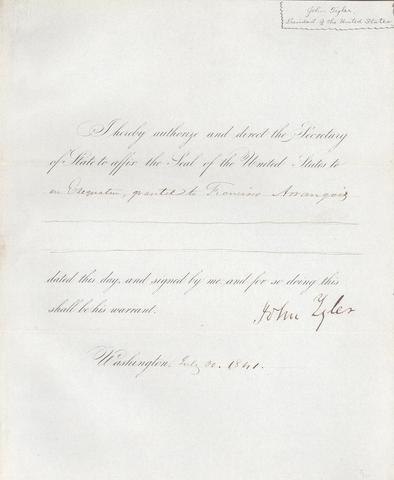 John Tyler
President of the United States
I hereby authorize and direct the Secretary
of State to affix the Seal of the United States to
an Exequatur, granted to Francisco Arrangoiz
dated this day, and signed by me, and for so doing this
shall be his warrant.
John Tyler
Washington, July 1841.